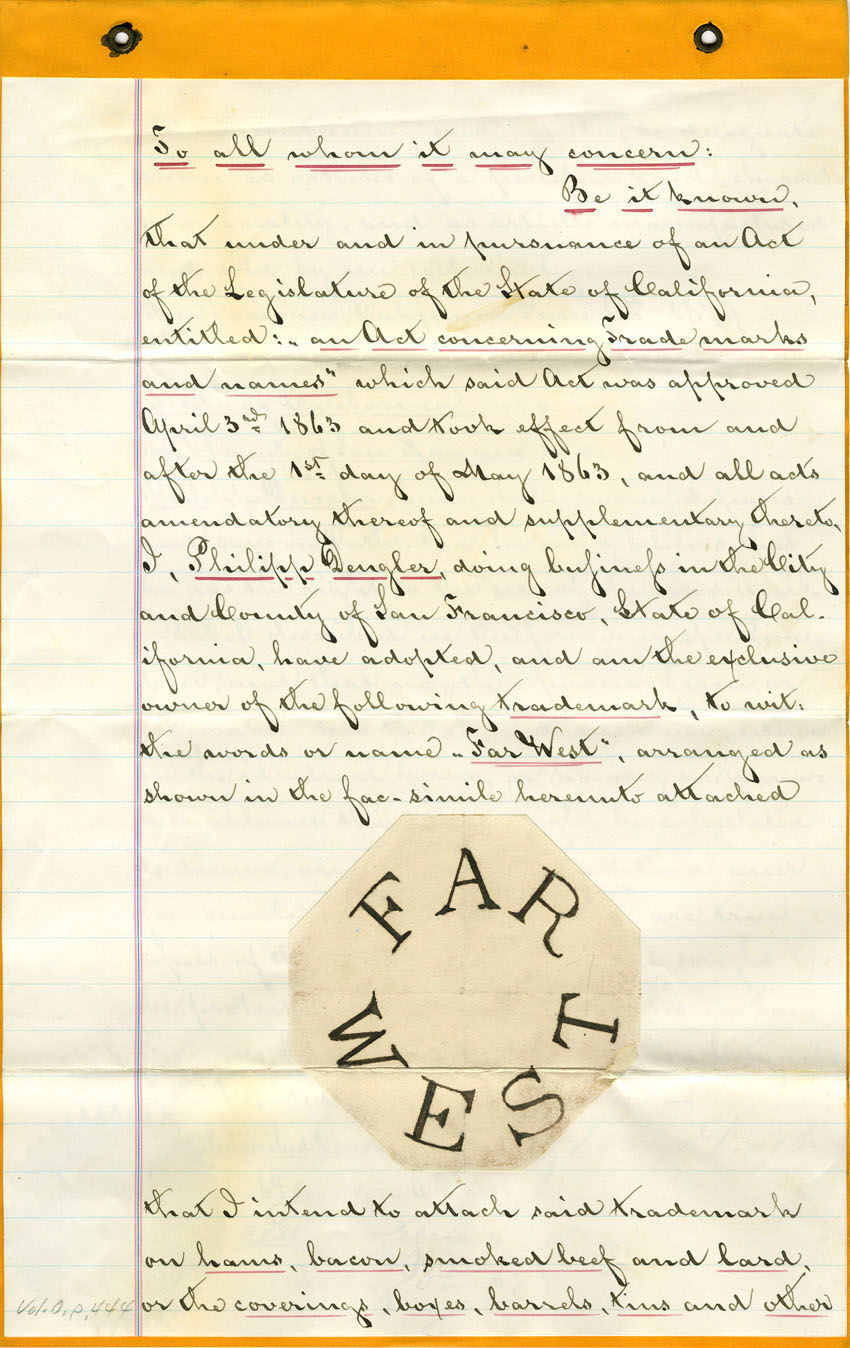 To all whom it may concern:
Be it known,
that under and in pursuance of an Act
of the Legislature of the State of California,
entitled: „an Act concerning Trade marks
and names" which said Act was approved
April 3rd 1863 and took effect from and
after the 1st day of May 1863, and all acts
amendatory thereof and supplementary thereto,
I, Philipp Dengler, doing business in the City
and County of San Francisco, State of Cal-
ifornia, have adopted, and am the exclusive
owner of the following trademark, to wit:
the words or name „Far West", arranged as
shown in the fac-simile hereunto attached
FAR
WEST
that I intend to attach said trademark
on hams, bacon, smoked beef and lard,
or the coverings, boxes, barrels, tins and other
Vol. O, p. 444